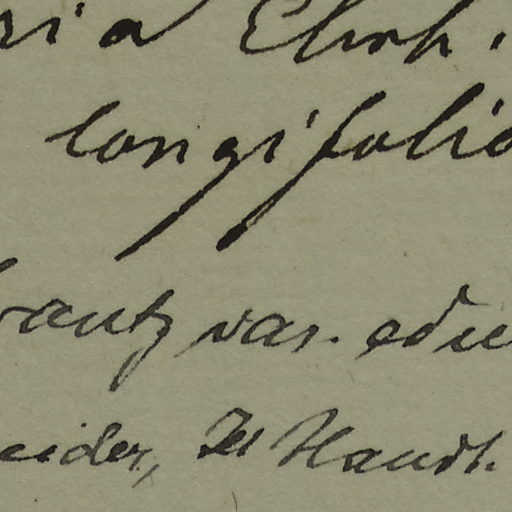 ria Ehrh.
longifolia
rantz var. edu
eider, Ill Handb.